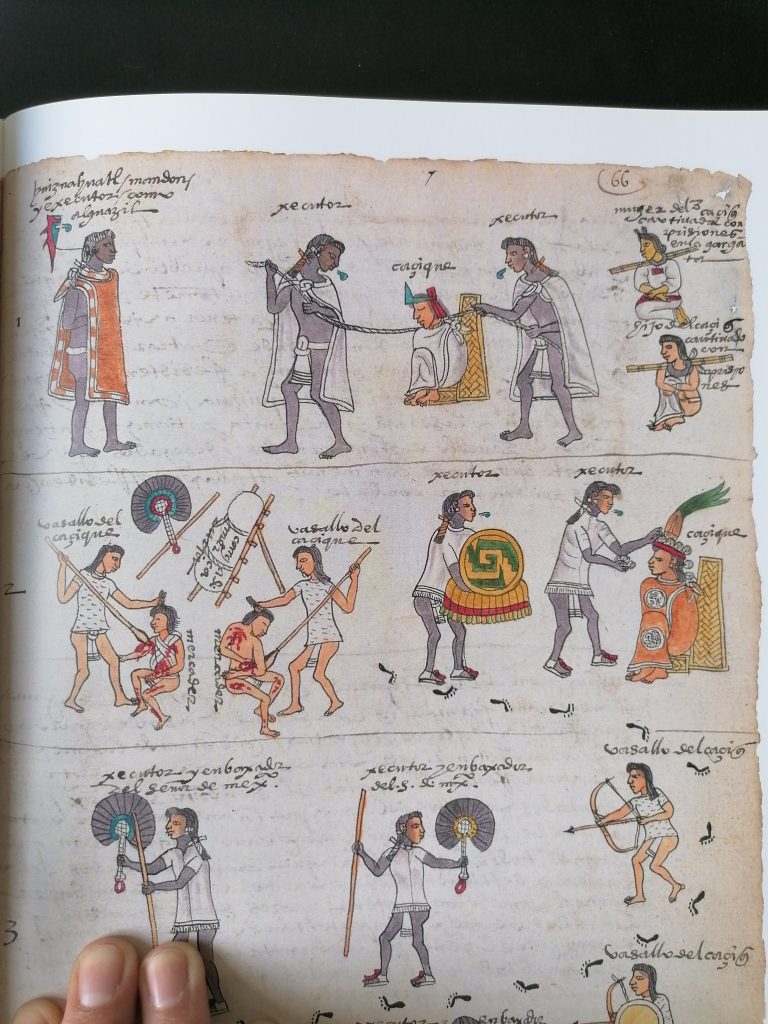 66
huiznahuatl / mandon /
y executor como
alguazil
xecutor
caçique
xecutor
muger del caçiq
cautivada con
prisiones
en la gargā
ta
hijo del caciq
cautivado
con
prisio
nes
1
vasallo del
caçique
mercader
mercader
vasallo del
caçique
xecutor
xecutor
caçique
2
xecutor y enbaxador
del señor de mexº.
xecutor y enbaxador
del .s. de mexº.
vasallo del caçiq
3
vasallo del caçiq
enbaxador